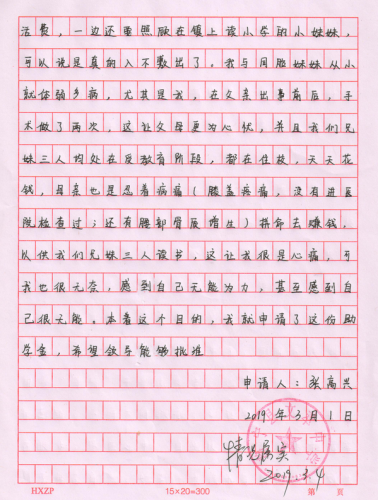 活费，一边还要照顾在镇上读小学的小妹妹，
可以说是真的入不敷出了。我与同胞妹妹从小
就体弱多病，尤其是我，在父亲出事前后，手
术做了两次，这让父母更为心忧，并且我们兄
妹三人均处在受教育阶段，都在住校，天天花
钱，母亲也是忍着病痛（膝盖疼痛，没有进医
院检查过；还有腰部骨质增生）拼命去赚钱，
以供我们兄妹三人读书，这让我很是心痛，可
我也很无奈，感到自己无能为力，甚至感到自
己很无能。本着这个目的，我就申请了这份助
学金，希望领导能够批准
申请人：张高兴
2019年3月1日
情况属实
2019.3.4
HXZP 15×20=300 第 页